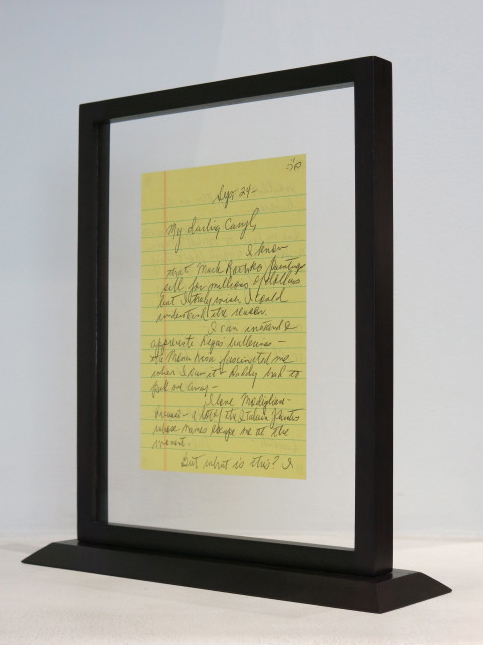 Sept 24-
My darling Caryl,
I know
that Mark Rothko paintings
sell for millions of dollars
but I surely wish I could
understand the reason.
I can understand &
appreciate Degas ballerinas -
the Mona Lisa fascinated me
when I saw it & Daddy had to
pick me away -
I love Modigliani-
- a lot of the Italian
whose names escape me at the
moment.
But what is this? I